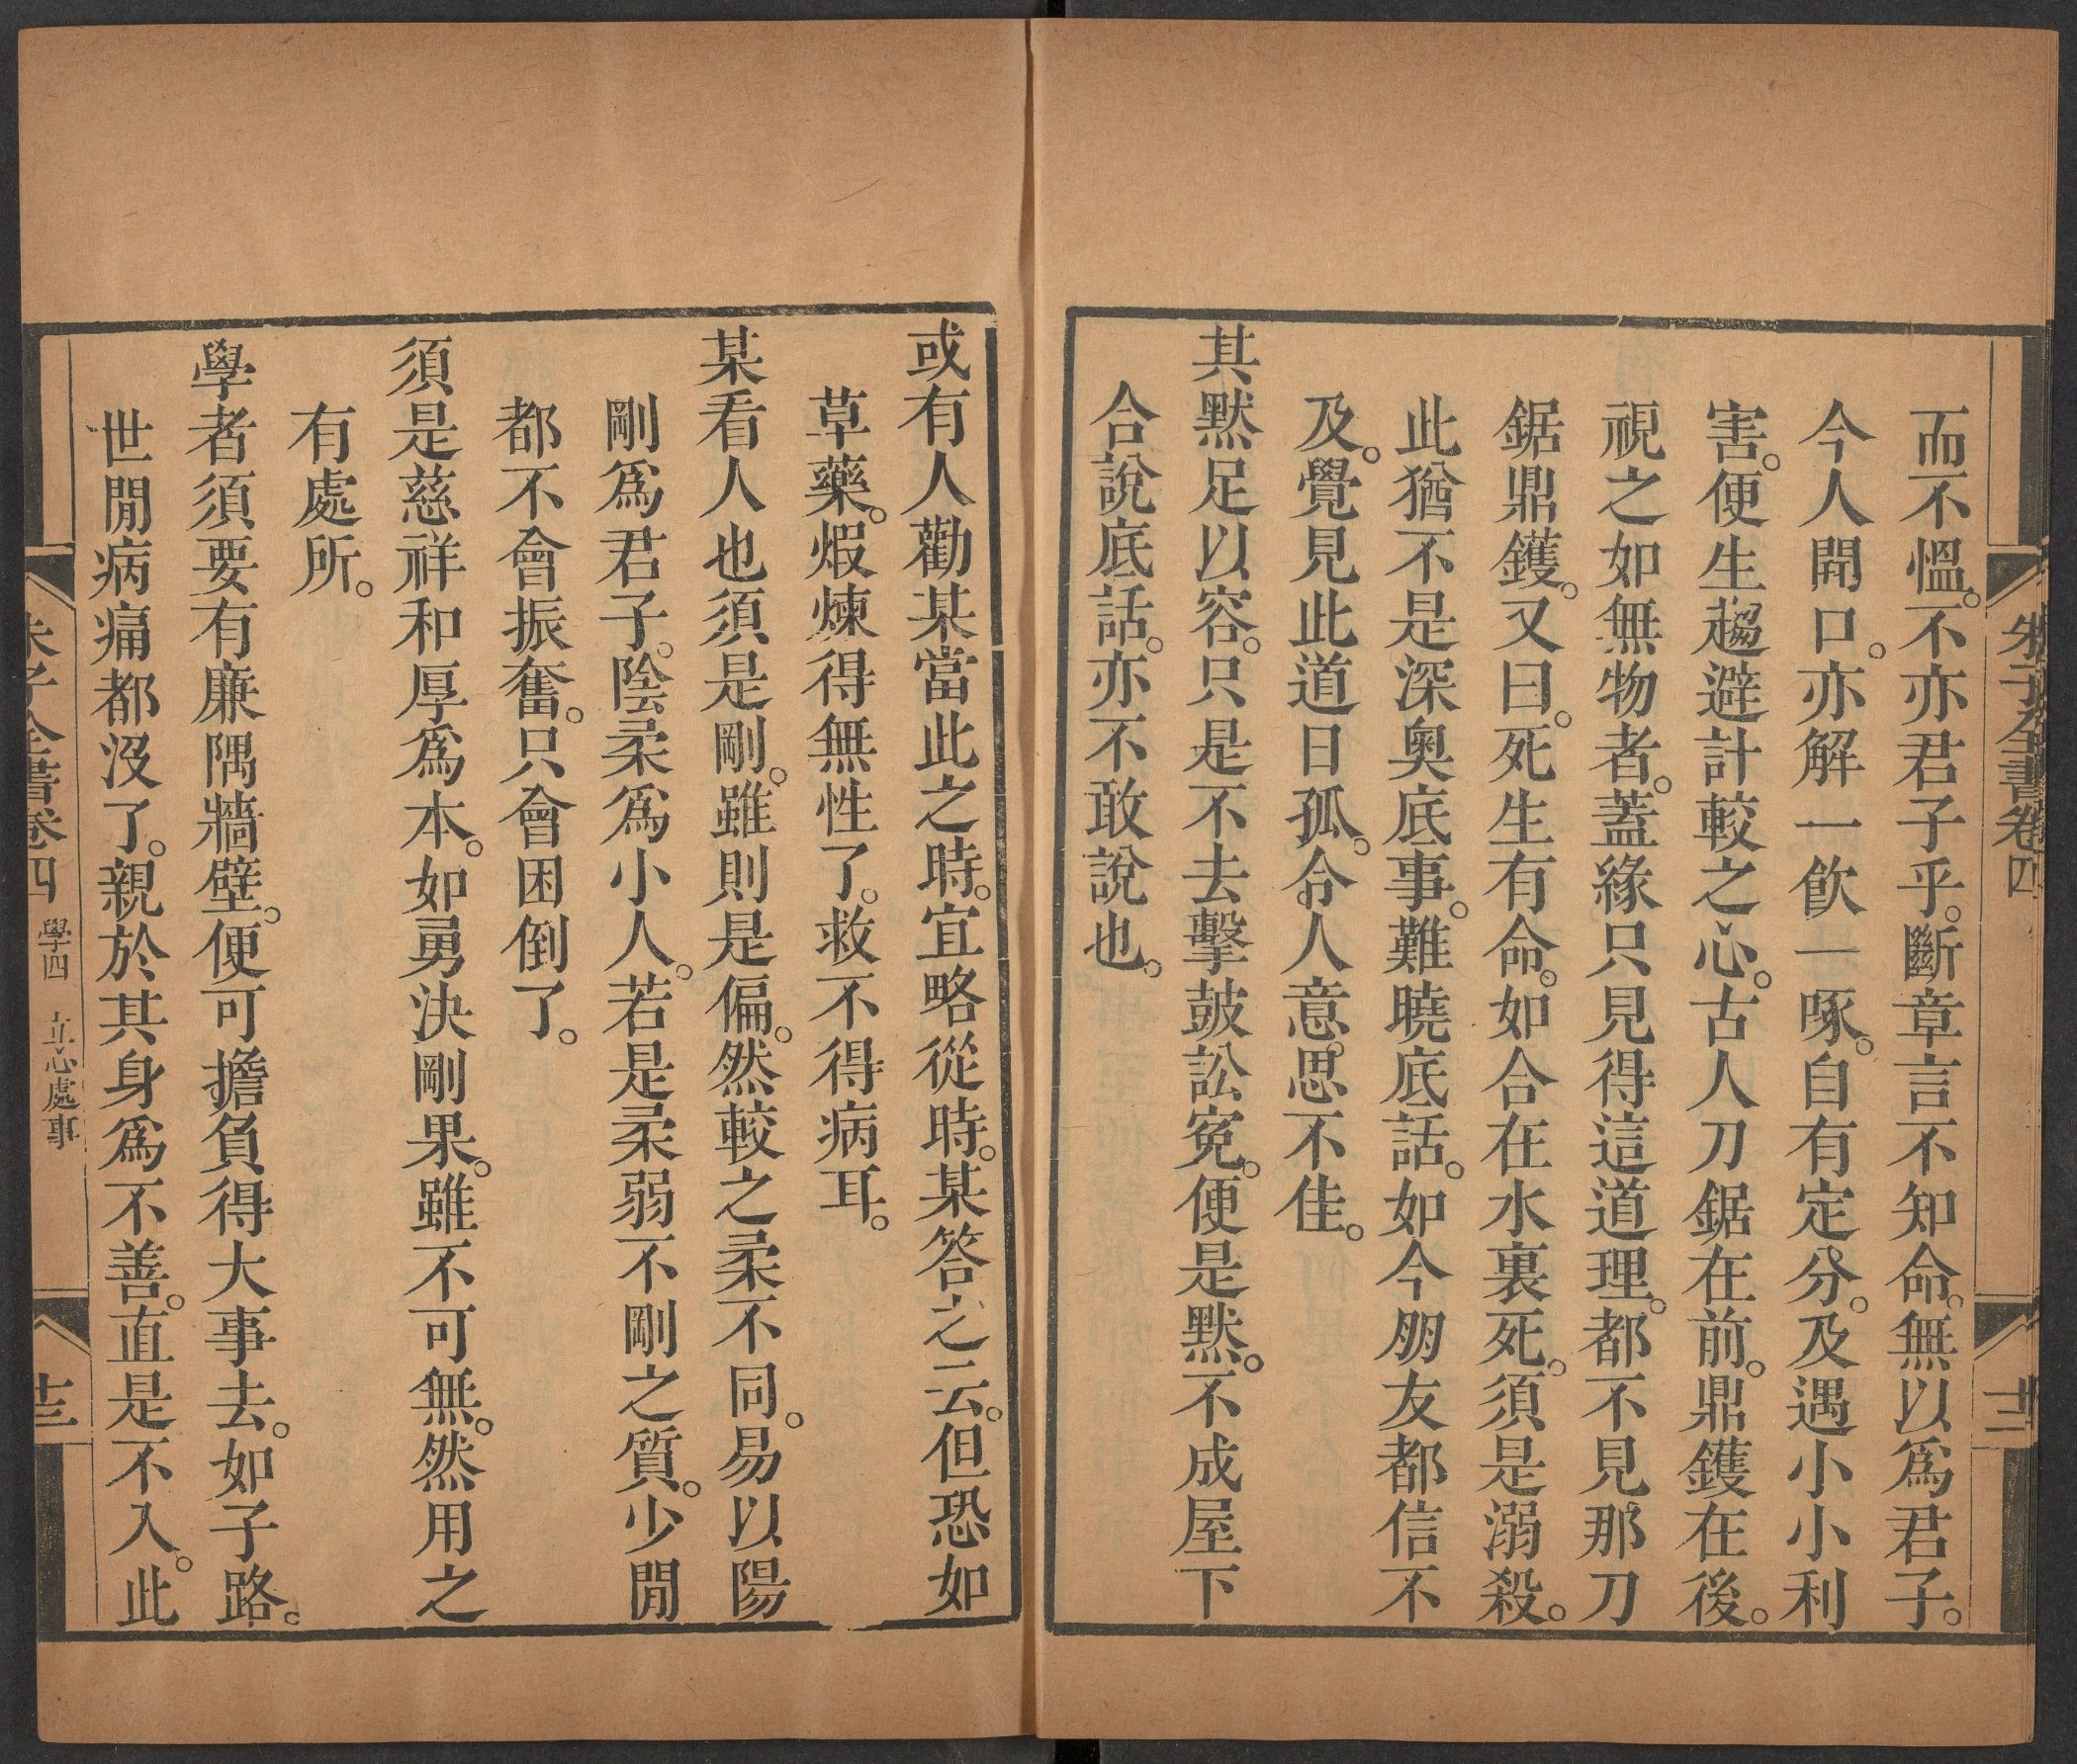 朱子全書卷四
十二
而不慍。不亦君子乎。斷章言不知命。無以爲君子。
今人開口。亦解一飮一啄。自有定分。及遇小小利
害。便生趨避計較之心。古人刀鋸在前。鼎鑊在後。
視之如無物者。蓋緣只見得這道理。都不見那刀
鋸鼎鑊。又曰。死生有命。如合在水裏死。須是溺殺。
此猶不是深奧底事。難曉底話。如今朋友都信不
及。覺見此道日孤。令人意思不佳。
其默足以容。只是不去擊鼓訟寃。便是默。不成屋下
合說底話。亦不敢說也。
或有人勸某當此之時。宜略從時。某答之云。但恐如
草藥。煆煉得無性了。救不得病耳。
某看人也須是剛。雖則是偏。然較之柔不同。易以陽
剛爲君子。陰柔爲小人。若是柔弱不剛之質。少閒
都不會振奮。只會困倒了。
須是慈祥和厚爲本。如勇決剛果。雖不可無。然用之
有處所。
學者須要有廉隅牆壁。便可擔負得大事去。如子路。
世閒病痛都沒了。親於其身爲不善。直是不入。此
朱子全書卷四 學四 立心處事
十三